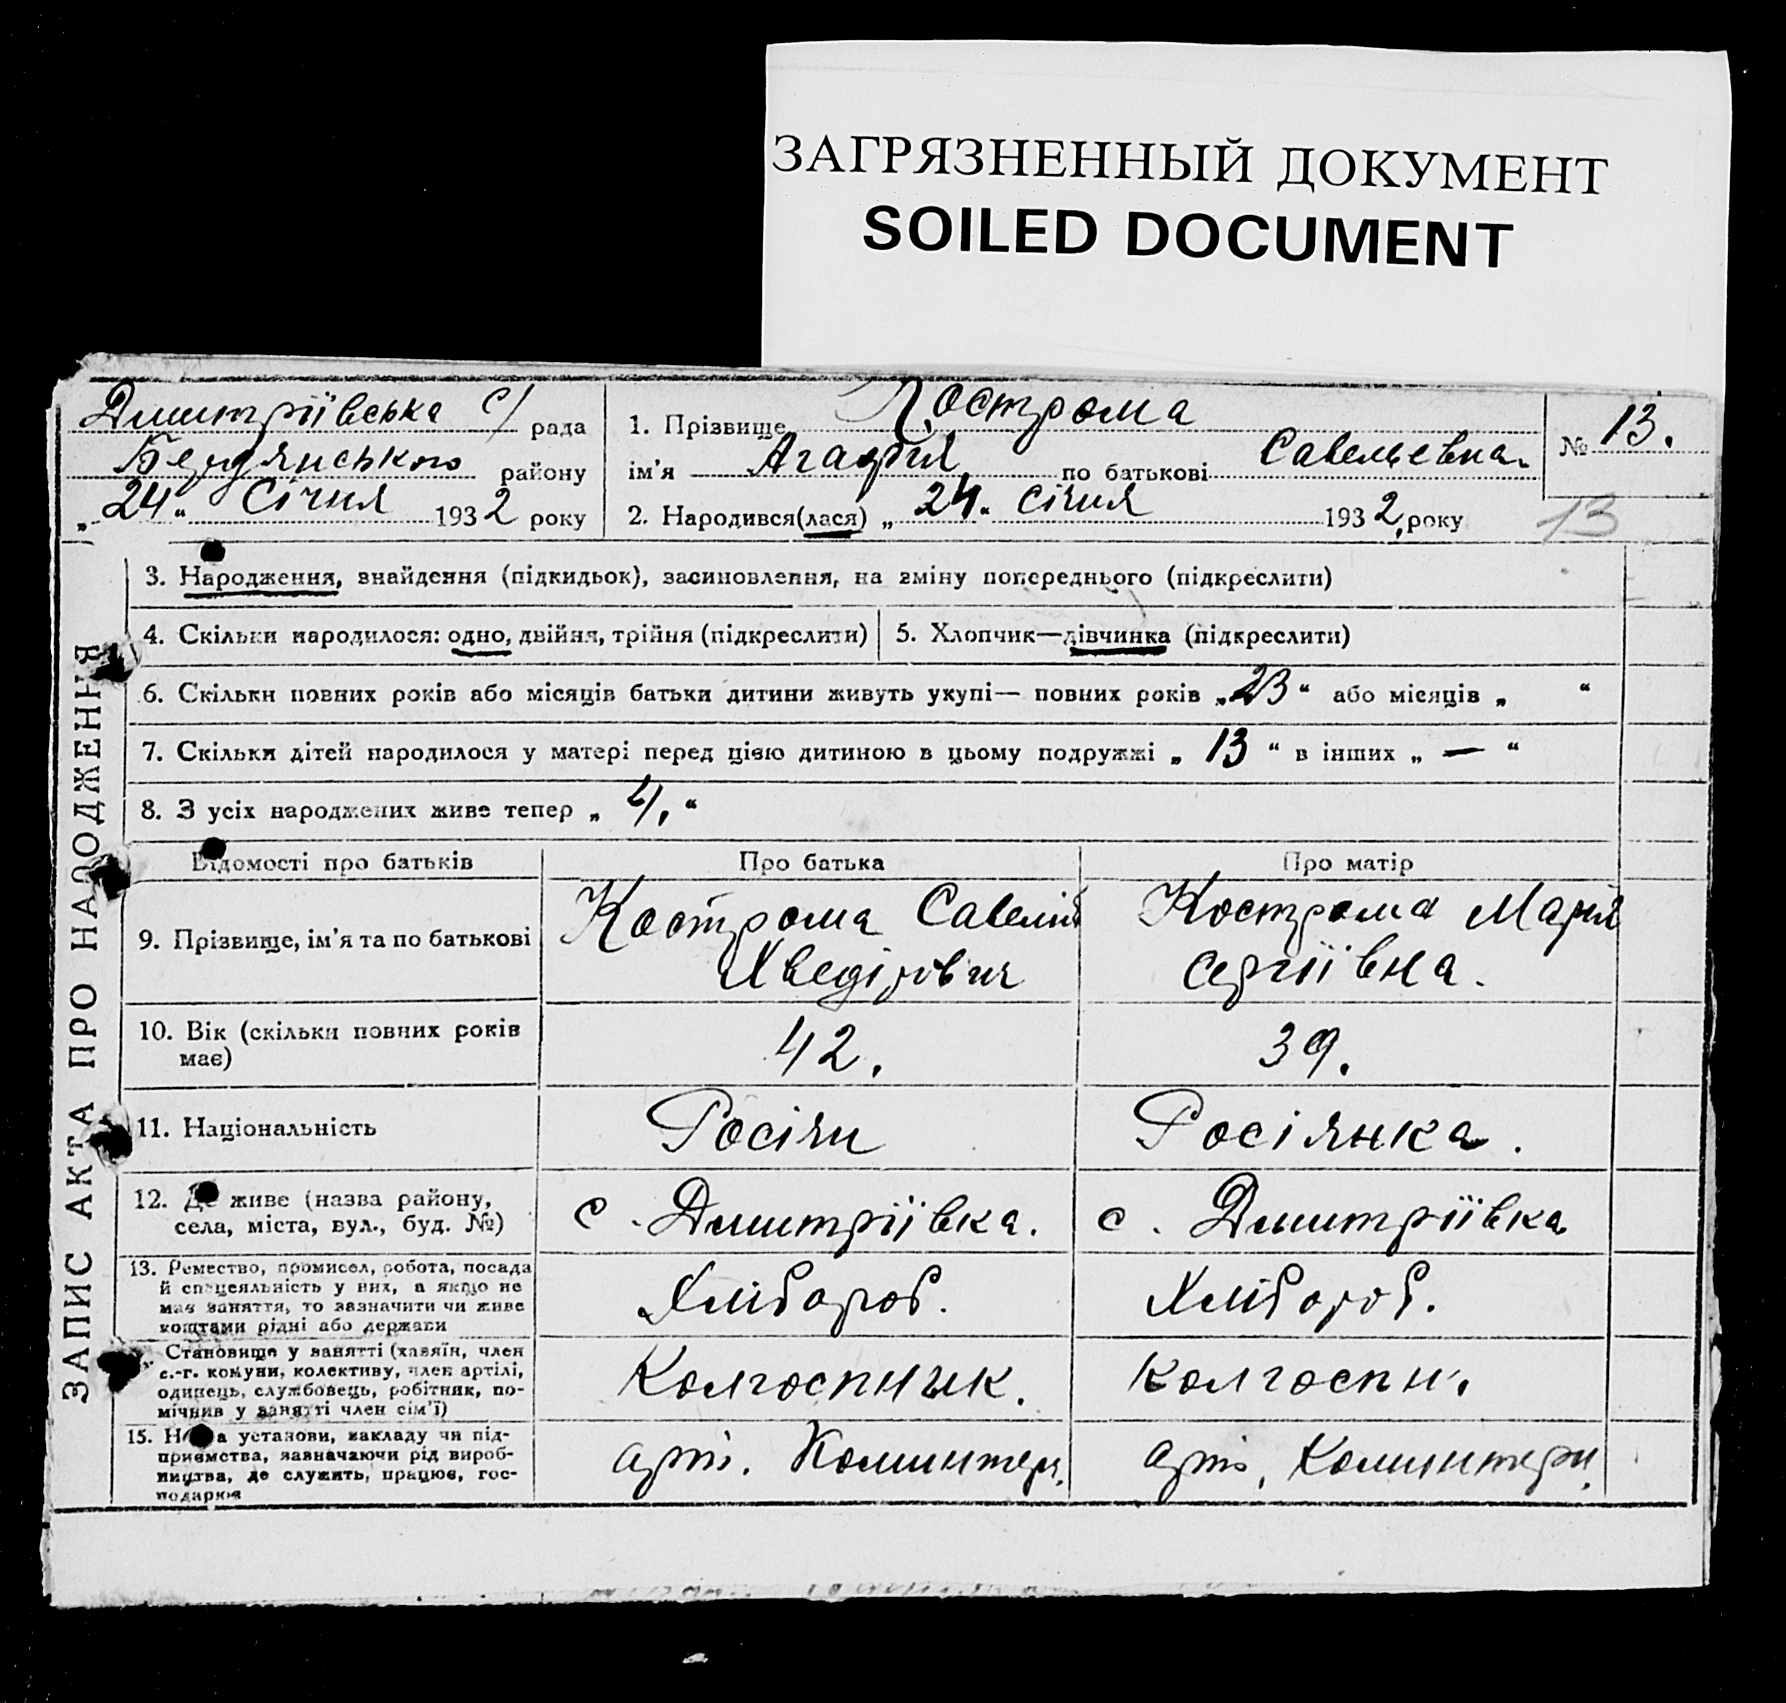 ЗАГРЯЗНЕННЫЙ ДОКУМЕНТ
SOILED DOCUMENT
Дмитріївська с/ рада
Бердянського району
„24“ Січня 1932 року
1. Прізвище Кострома
ім’я Агафія по батькові Савельевна.
2. Народився(лася) „24. січня 1932, року
№ 13.
13
ЗАПИС АКТА ПРО НАРОДЖЕННЯ
3. Народження, знайдення (підкидьок), засиновлення, на зміну попереднього (підкреслити)
4. Скільки народилося: одно, двійня, трійня (підкреслити)
5. Хлопчик—дівчинка (підкреслити)
6. Скільки повних років або місяців батьки дитини живуть укупі— повних років „23“ або місяців „ “
7. Скільки дітей народилося у матері перед цією дитиною в цьому подружжі „13“ в інших „—“
8. З усіх народжених живе тепер „4.“
Відомості про батьків Про батька Про матір
9. Прізвище, ім’я та по батькові
Кострома Савелій
Хведірович
Кострома Марія
Сергіївна.
10. Вік (скільки повних років
має)
42. 39.
11. Національність Росіян Росіянка.
12. Де живе (назва району,
села, міста, вул., буд. №)
с. Дмитріївка. с. Дмитріївка
13. Ремество, промисел, робота, посада
й спецеяльність у них, а якщо не
має заняття, то зазначити чи живе
коштами рідні або держави
Хлібороб. Хлібороб.
Становище у занятті (хазяїн, член
с.-г. комуни, колективу, член артілі,
одинець, службовець, робітник, по-
мічнив у занятті член сім’ї)
Колгоспник. Колгоспн.
15. Назва установи, закладу чи під-
приємства, зазначаючи рід вироб-
ництва, де служить, працює, гос-
подарює
арт. Коминтерн. арт. Коминтерн.